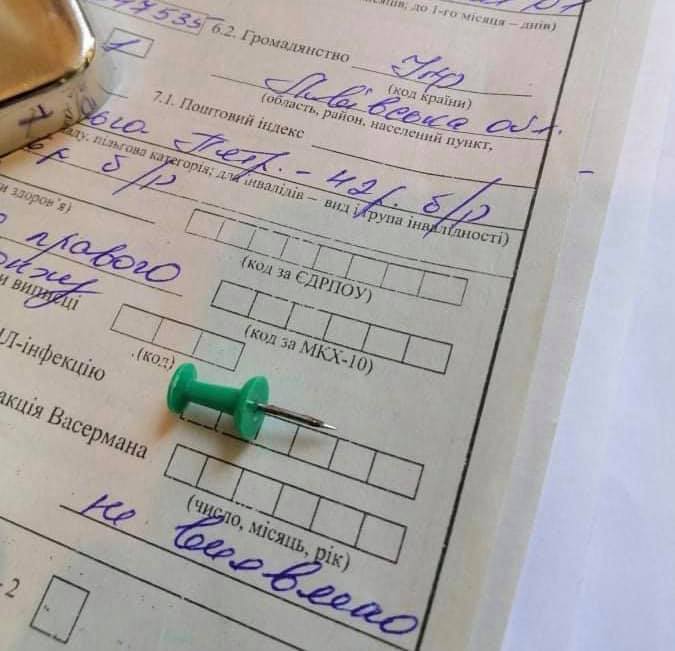 місяців; до 1-го місяця – днів)
47535
6.2. Громадянство Укр
(код країни)
1
Львівська обл.
(область, район, населений пункт,
7.1. Поштовий індекс
– 42р. б/р
пільгова категорія; для інвалідів – вид і група інвалідності)
б/р
здоров'я)
(код за ЄДРПОУ)
правого
виписці
(код за МКХ-10)
(код)
інфекцію
акція Васермана
(число, місяць, рік)
не виявлено
2